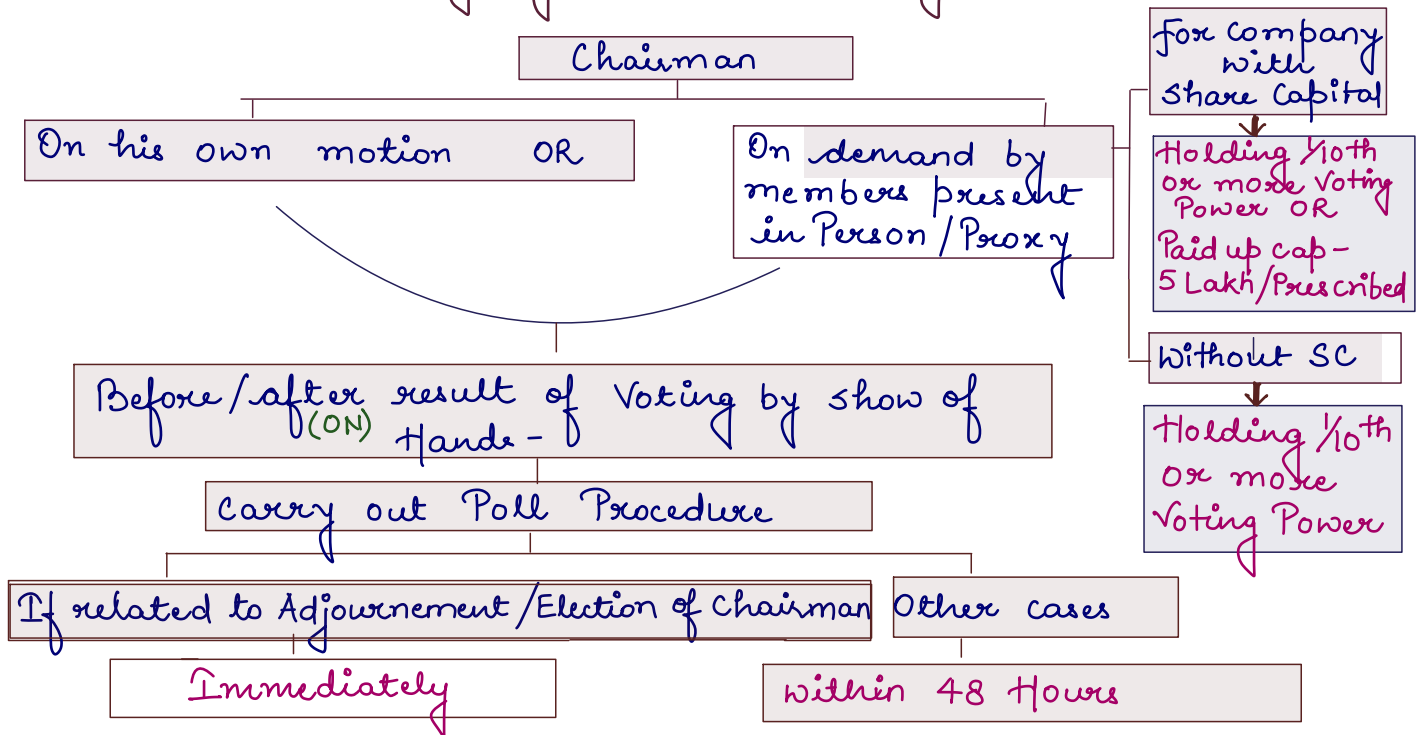 Chairman
On his own motion OR
On demand by
members present
in Person/Proxy
For Company
with
Share Capital
Holding 1/10th
or more Voting
Power OR
Paid up cap-
5 Lakh/Prescribed
Without SC
Holding 1/10th
or more
Voting Power
Before/after result of Voting by show of
(ON)
Hands-
Carry out Poll Procedure
If related to Adjournement/Election of Chairman
Immediately
Other cases
Within 48 Hours